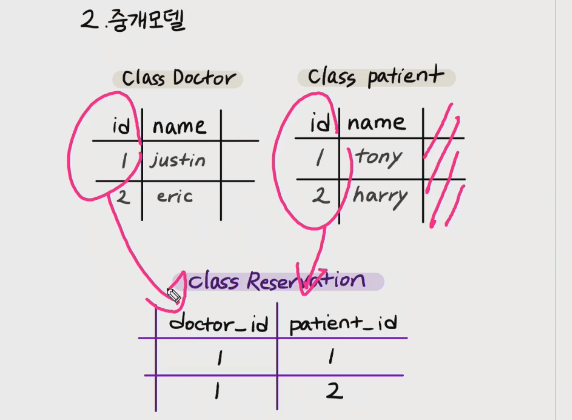 2.중개모델
Class Doctor
id name
1 justin
2 eric
Class patient
id name
1 tony
2 harry
Class Reservation
doctor_id patient_id
1 1
1 2